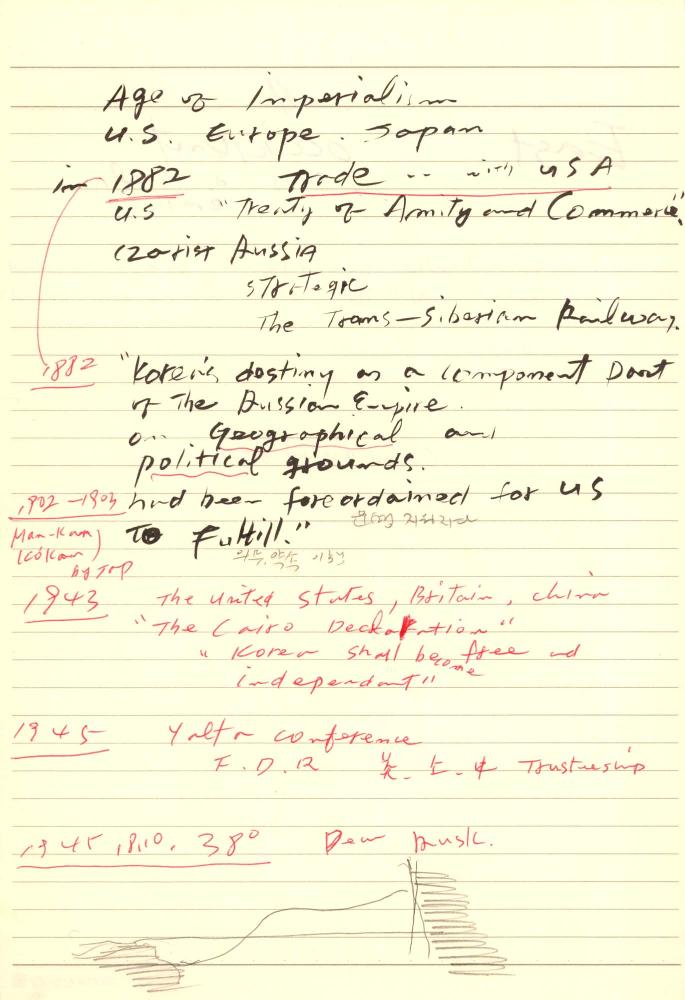 Age of Imperialism
U.S. Europe. Japan
in 1882 Trade .. with USA
U.S "Treaty of Amity and Commerce"
Czarist Russia
strategic
The Trans-Siberian Railway.
1882 "Korea's destiny as a component part
of The Russian Empire.
on Geographical and
political grounds.
1902-1903 had been foreordained for us
Man-Kan
운명 지워지다
To Fulfill."
by Jap
의무, 약속 이행
1943 The United States, Britain, china
"The Cairo Declaration"
" Korea shall become free and
independant"
1945 Yalta conference
F.D.R 美. 소. 中 Trusteeship
1945, 8.10. 38° Dean Rusk.